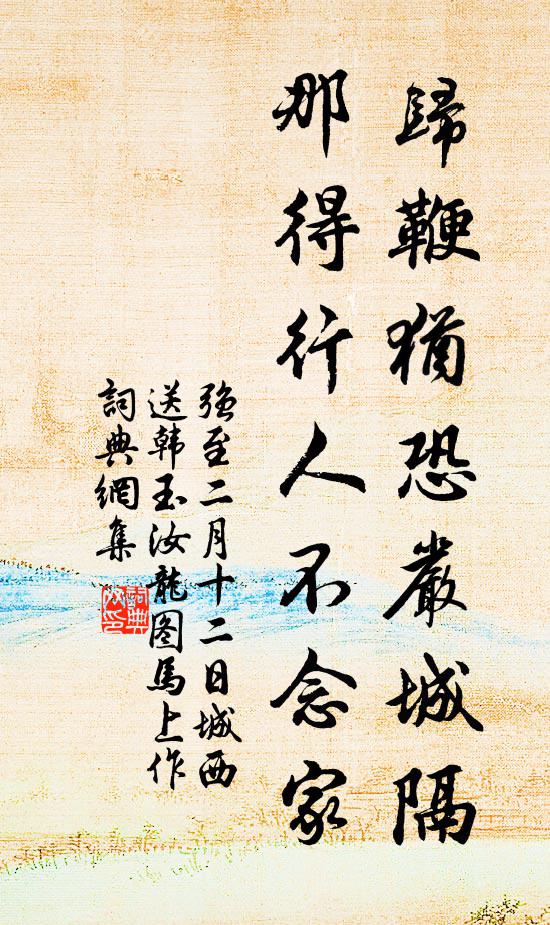 歸鞭猶恐嚴城隔
那得行人不念家
强至二月十二日城西
送韩玉汝龍图馬上作
詞典網集